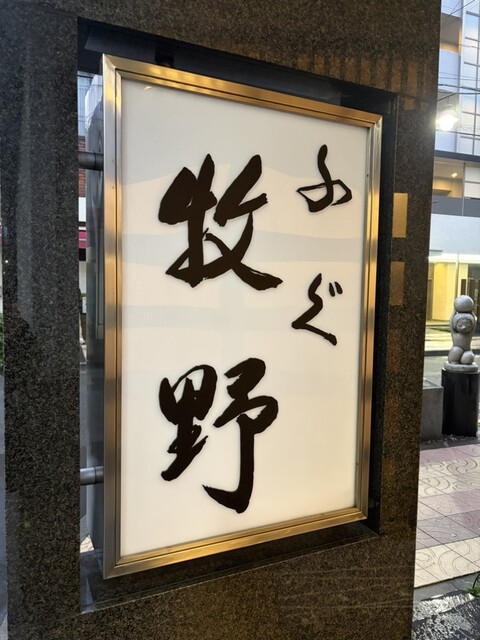 ふぐ
牧野